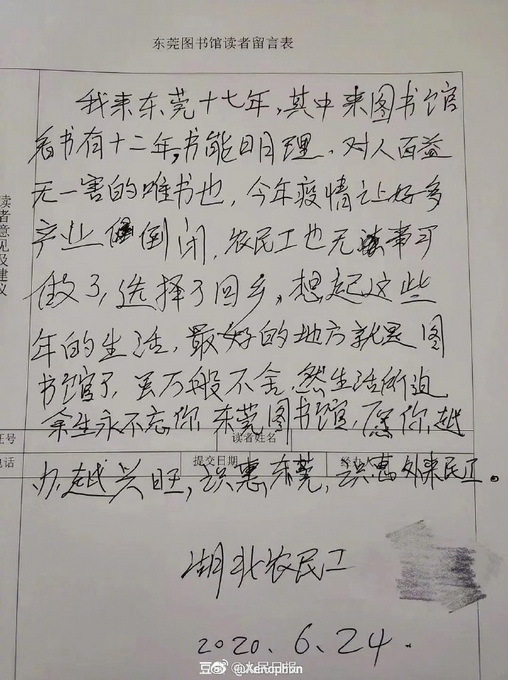 东莞图书馆读者留言表
我来东莞十七年，其中来图书馆
看书有十二年，书能明理，对人百益
无一害的唯书也，今年疫情让好多
产业倒闭，农民工也无事可
做了，选择了回乡，想起这些
年的生活，最好的地方就是图
书馆了，虽万般不舍，然生活所迫
余生永不忘你东莞图书馆，愿你越
办越兴旺，识惠东莞，识惠外来民工。
读者意见及建议
证号
读者姓名
电话
提交日期
湖北农民工
2020.6.24.
@Xenophon